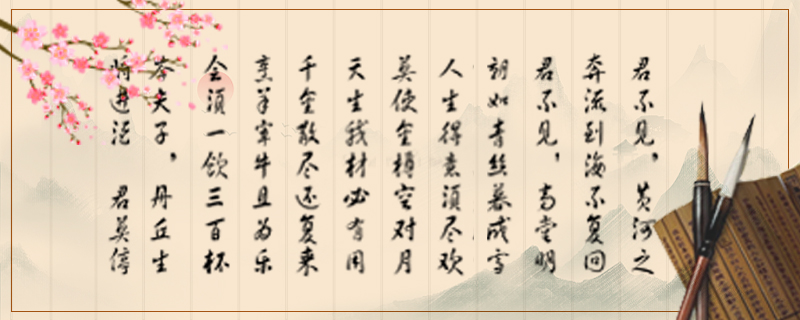 君不见，黄河之
奔流到海不复回
君不见，高堂明
朝如青丝暮成雪
人生得意须尽欢
莫使金樽空对月
天生我材必有用
千金散尽还复来
烹羊宰牛且为乐
会须一饮三百杯
岑夫子，丹丘生
将进酒 君莫停